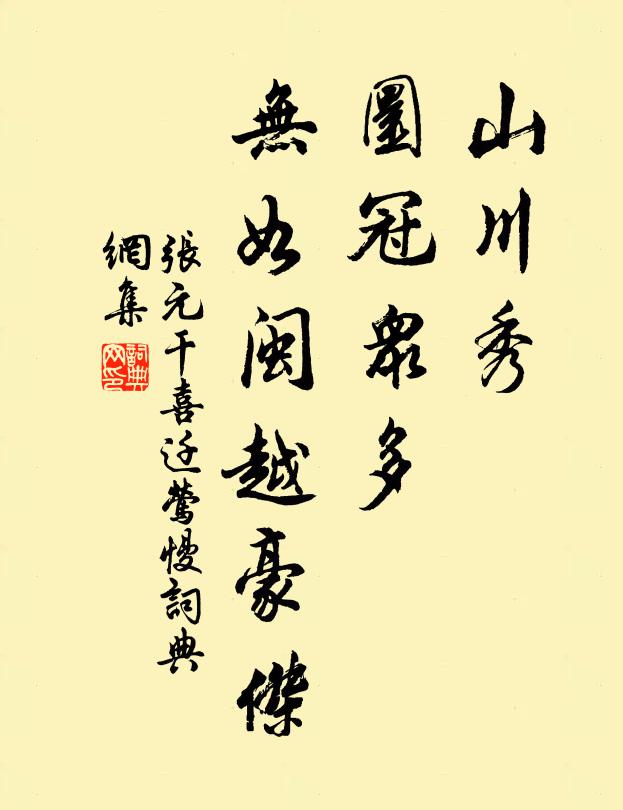 山川秀
圜冠眾多
無如閩越豪傑
張元干喜迁鶯慢詞典
網集
詞典
网印